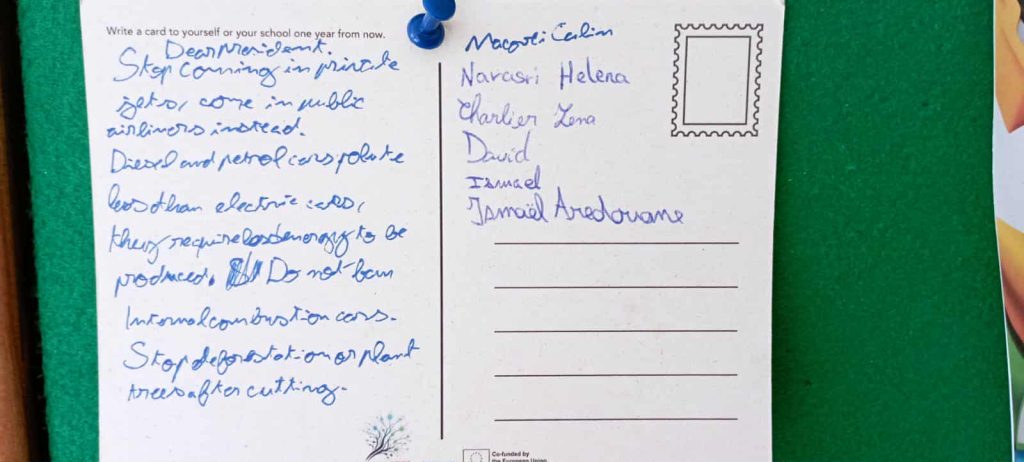 Write a card to yourself or your school one year from now.
Dear president.
Stop coming in private
jets, come in public
airliners instead.
Diesel and petrol cars polute
less than electric cars,
they require less energy to be
produced. Do not ban
Internal combustion cars.
Stop deforestation or plant
trees after cutting.
Călin
Navasri Helena
Charlier Lena
David
Ismael
Ismaël Aredouane
Co-funded by
the European Union